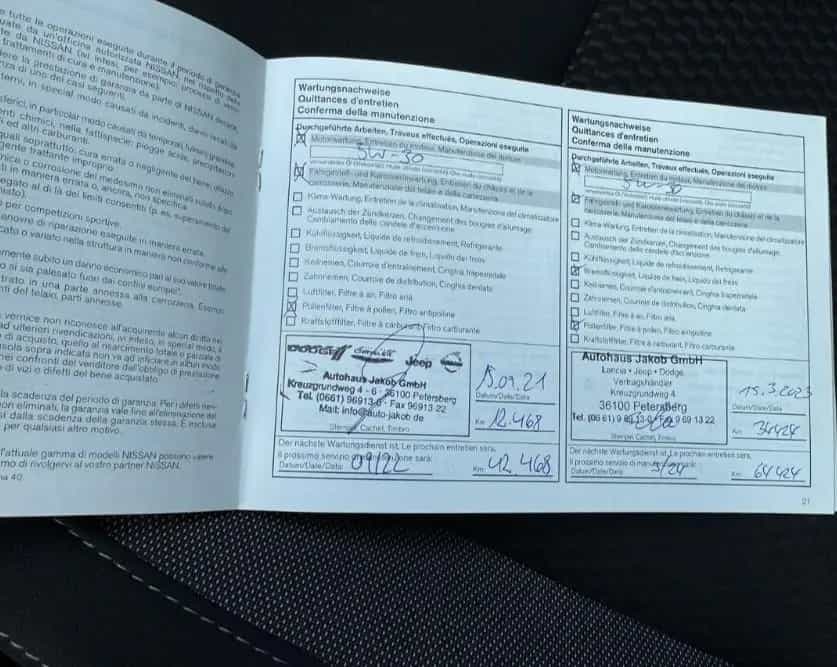 tutte le operazioni eseguite durante il periodo di garanzia
da un'officina autorizzata NISSAN, nel rispetto delle
da NISSAN (ivi intesi, per esempio: processi di
trattamenti di cura e manutenzione).
la prestazione di garanzia da parte di NISSAN
di uno dei casi seguenti:
in special modo causati da incidenti,
in particolar modo causati da temporali, fulmini, grandine,
chimici, nella fattispecie: piogge acide,
ed altri carburanti.
quali soprattutto, cura errata o negligente del bene, utilizzo
trattante improprio.
o corrosione del medesimo non eliminati
in maniera errata o, ancora, non specifica
al di là dei limiti consentiti (p. es. superamento del
per competizioni sportive.
di riparazione eseguite in maniera errata.
o variato nella struttura in maniera non conforme alle
subito un danno economico pari al suo valore totale
si sia palesato fuori dai confini europei
in una parte annessa alla carrozzeria. Esempi:
del telaio, parti annesse.
vernice non riconosce all'acquirente alcun diritto
ad ulteriori rivendicazioni, ivi inteso, in special modo, il
di acquisto, quello al risarcimento totale o parziale di
sopra indicata non va ad inficiare in alcun modo
nei confronti del venditore dell'obbligo di prestazione
di vizi o difetti del bene acquistato
la scadenza del periodo di garanzia. Per i difetti
non eliminati, la garanzia vale fino all'eliminazione
dalla scadenza della garanzia stessa. È esclusa
per qualsiasi altro motivo.
l'attuale gamma di modelli NISSAN possono variare
di rivolgervi al vostro partner NISSAN.
40
Wartungsnachweise
Quittances d'entretien
Conferma della manutenzione
Durchgeführte Arbeiten, Travaux effectués, Operazioni eseguite
Motorwartung, Entretien du moteur, Manutenzione del motore
5W-30
Fahrgestell- und Karosseriewartung, Entretien du châssis et de la
carrosserie, Manutenzione del telaio e della carrozzeria
Klima-Wartung, Entretien de la climatisation, Manutenzione del climatizzatore
Austausch der Zündkerzen, Changement des bougies d'allumage,
Cambiamento delle candele d'accensione
Kühlflüssigkeit, Liquide de refroidissement, Refrigerante
Bremsflüssigkeit, Liquide de frein, Liquido dei freni
Keilriemen, Courroie d'entraînement, Cinghia trapezoidale
Zahnriemen, Courroie de distribution, Cinghia dentata
Luftfilter, Filtre à air, Filtro aria
Pollenfilter, Filtre à pollen, Filtro antipolline
Kraftstofffilter, Filtre à carburant, Filtro carburante
DODGE Jeep
Autohaus Jakob GmbH
Kreuzgrundweg 4 - 6 · 36100 Petersberg
Tel. (0661) 96913-0 · Fax 96913 22
Mail: info@auto-jakob.de
Stempel, Cachet, Timbro
15.09.21
Datum/Date/Data
Km 12.468
Der nächste Wartungsdienst ist, Le prochain entretien sera,
Il prossimo servizio di manutenzione sarà:
Datum/Date/Data: 09/22 Km 42.468
Wartungsnachweise
Quittances d'entretien
Conferma della manutenzione
Durchgeführte Arbeiten, Travaux effectués, Operazioni eseguite
Motorwartung, Entretien du moteur, Manutenzione del motore
5W-30
Fahrgestell- und Karosseriewartung, Entretien du châssis et de la
carrosserie, Manutenzione del telaio e della carrozzeria
Klima-Wartung, Entretien de la climatisation, Manutenzione del climatizzatore
Austausch der Zündkerzen, Changement des bougies d'allumage,
Cambiamento delle candele d'accensione
Kühlflüssigkeit, Liquide de refroidissement, Refrigerante
Bremsflüssigkeit, Liquide de frein, Liquido dei freni
Keilriemen, Courroie d'entraînement, Cinghia trapezoidale
Zahnriemen, Courroie de distribution, Cinghia dentata
Luftfilter, Filtre à air, Filtro aria
Pollenfilter, Filtre à pollen, Filtro antipolline
Kraftstofffilter, Filtre à carburant, Filtro carburante
Autohaus Jakob GmbH
Lancia • Jeep • Dodge
Vertragshändler
Kreuzgrundweg 4
36100 Petersberg
Tel. (06 61) 9 69 13 22
Stempel, Cachet, Timbro
15.3.2023
Datum/Date/Data
Km 34424
Der nächste Wartungsdienst ist, Le prochain entretien sera,
Il prossimo servizio di manutenzione sarà:
Datum/Date/Data: 3/24 Km 64424
21